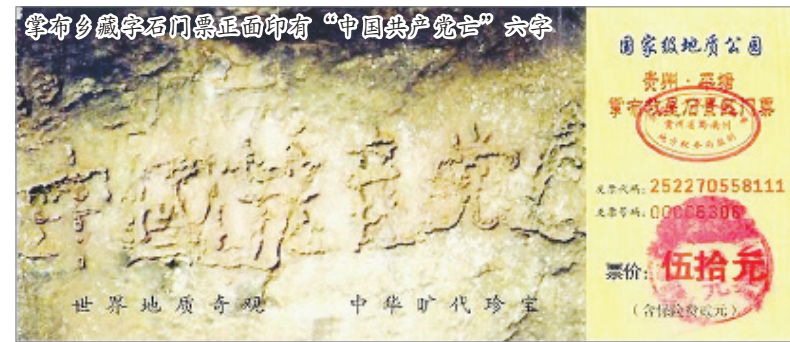 掌布乡藏字石门票正面印有“中国共产党亡”六字
中国共产党亡
世界地质奇观 中华旷代珍宝
国家级地质公园
贵州·平塘
掌布
景区门票
发票代码：252270558111
发票号码：00006306
票价：伍拾元